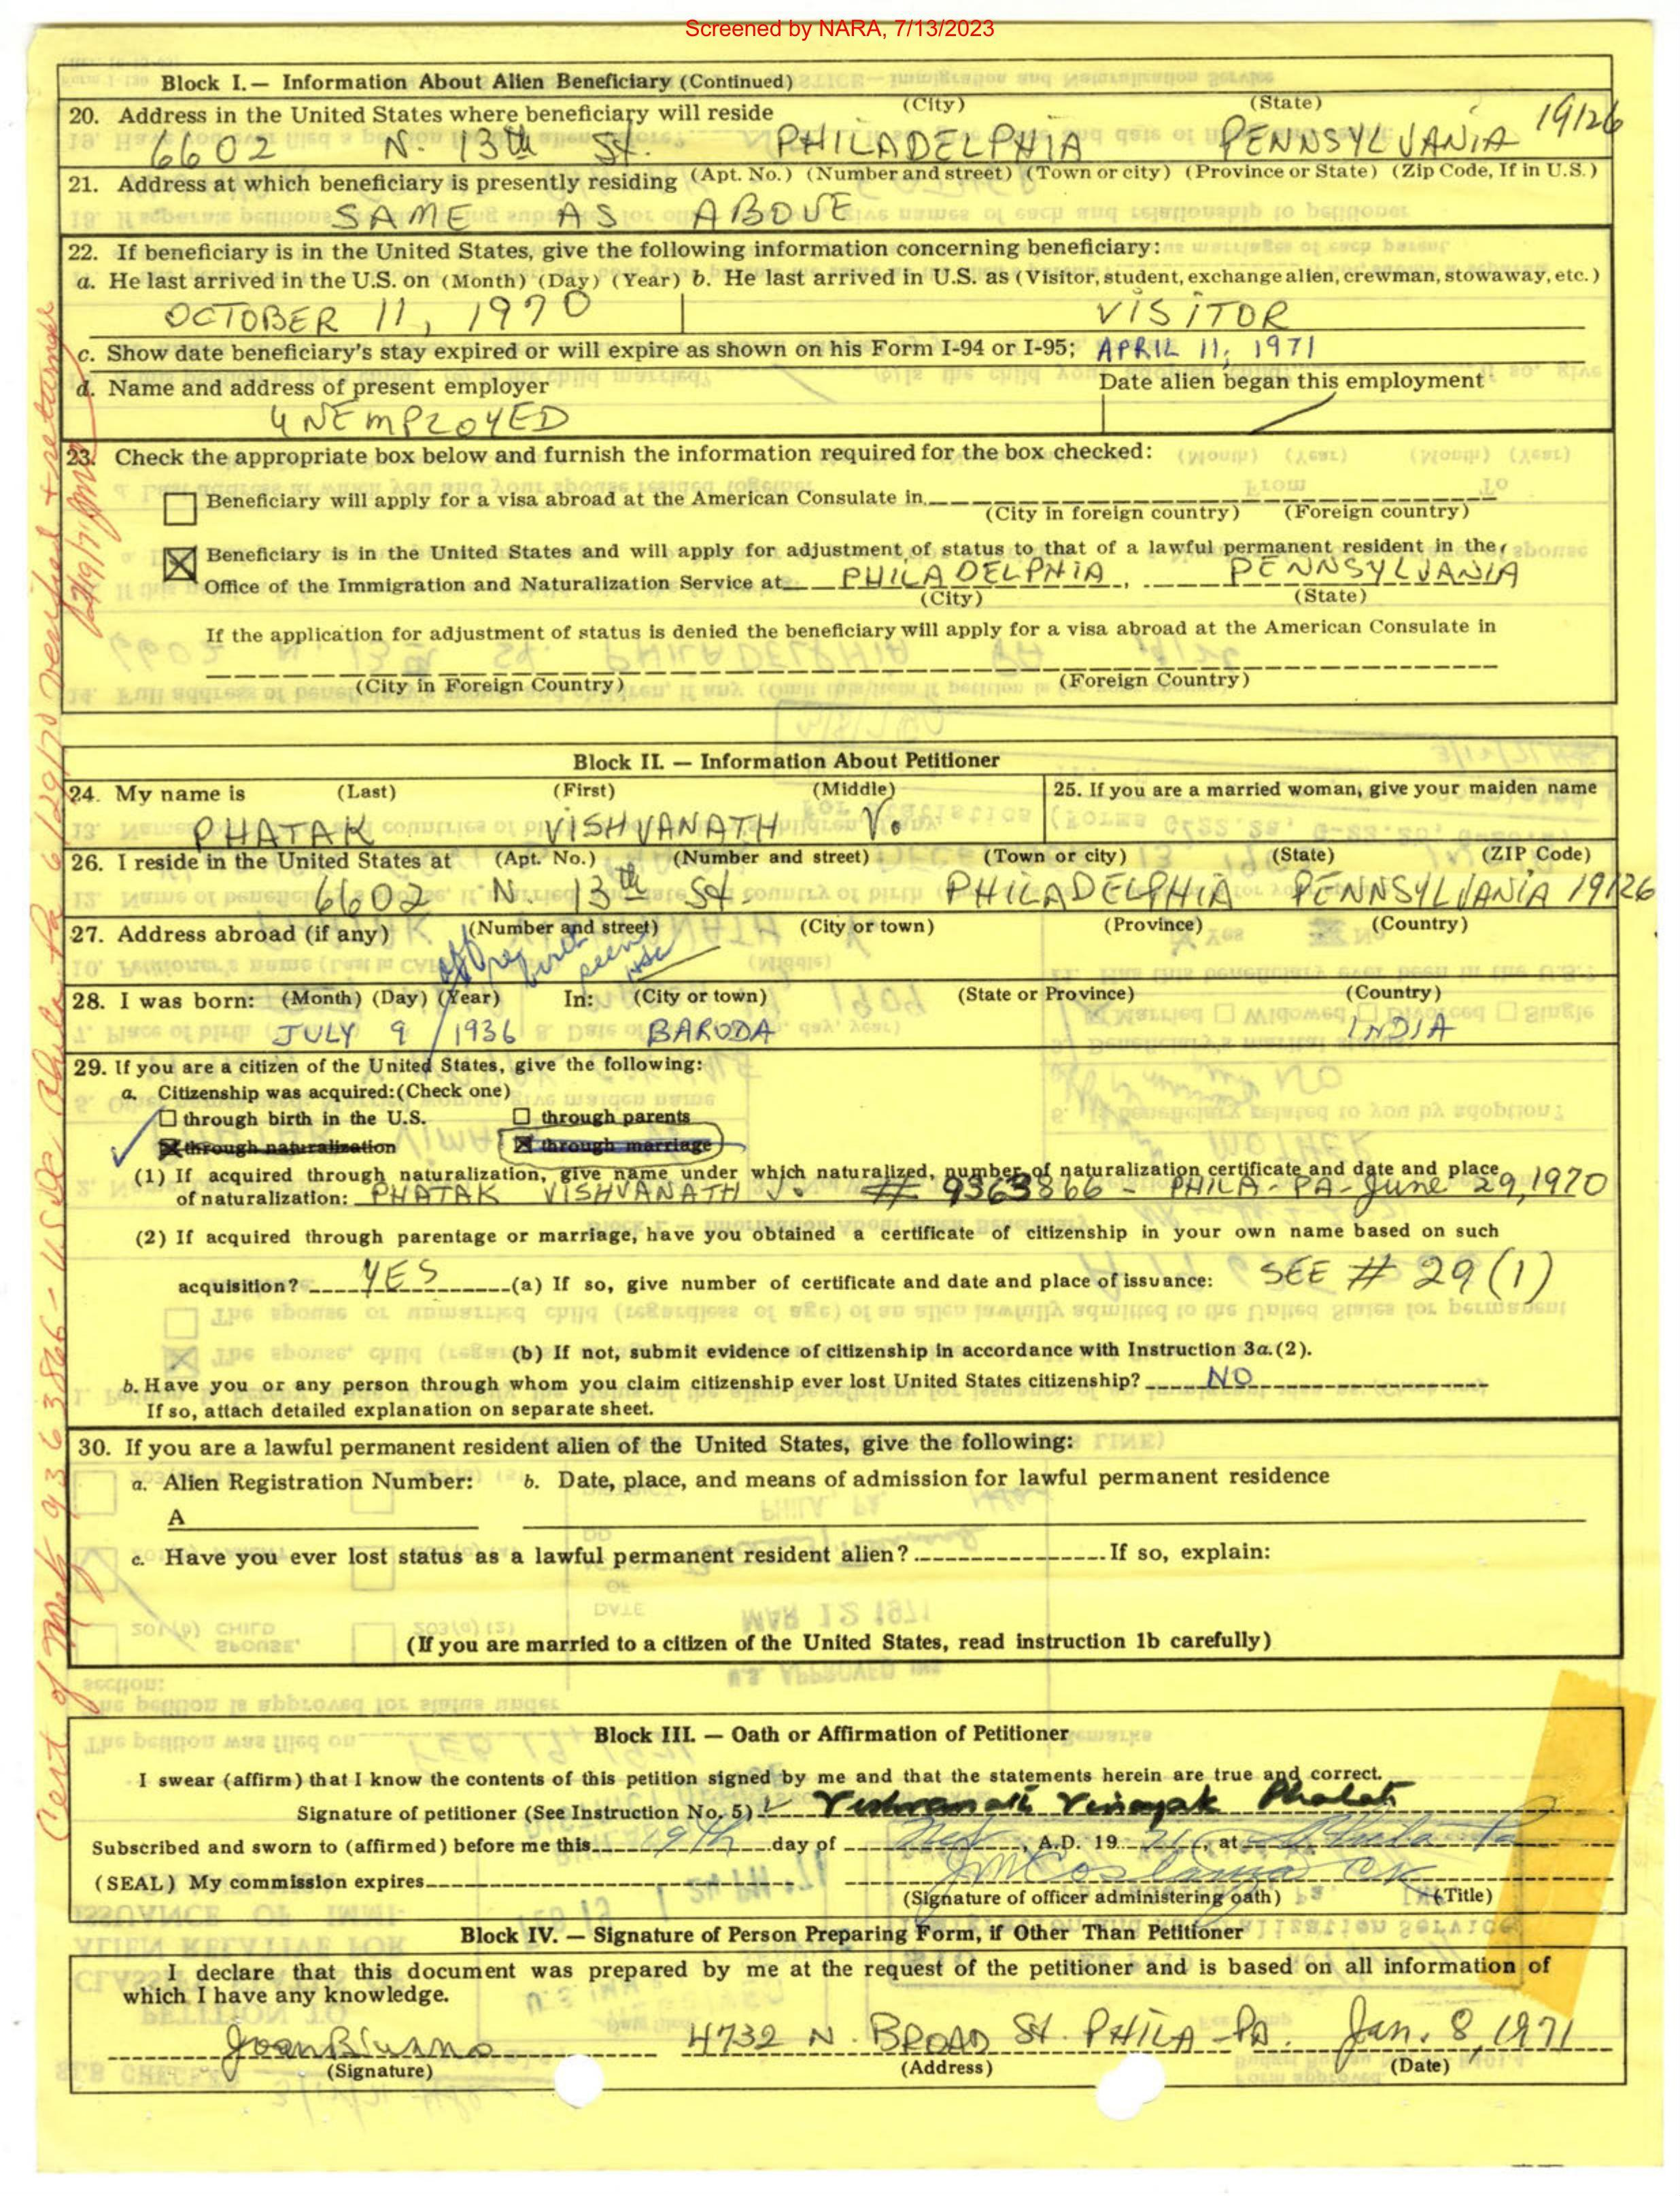 Screened by NARA, 7/13/2023
Block I.— Information About Alien Beneficiary (Continued)
20. Address in the United States where beneficiary will reside (City) (State)
6602 N. 13th St. PHILADELPHIA PENNSYLVANIA 19126
21. Address at which beneficiary is presently residing (Apt. No.) (Number and street) (Town or city) (Province or State) (Zip Code, If in U.S.)
SAME AS ABOVE
22. If beneficiary is in the United States, give the following information concerning beneficiary:
a. He last arrived in the U.S. on (Month) (Day) (Year) b. He last arrived in U.S. as (Visitor, student, exchange alien, crewman, stowaway, etc.)
OCTOBER 11, 1970 VISITOR
c. Show date beneficiary's stay expired or will expire as shown on his Form I-94 or I-95; APRIL 11, 1971
d. Name and address of present employer Date alien began this employment
UNEMPLOYED
23. Check the appropriate box below and furnish the information required for the box checked:
Beneficiary will apply for a visa abroad at the American Consulate in
(City in foreign country) (Foreign country)
Beneficiary is in the United States and will apply for adjustment of status to that of a lawful permanent resident in the
Office of the Immigration and Naturalization Service at PHILADELPHIA, PENNSYLVANIA
(City) (State)
If the application for adjustment of status is denied the beneficiary will apply for a visa abroad at the American Consulate in
(City in Foreign Country) (Foreign Country)
Block II. — Information About Petitioner
24. My name is (Last) (First) (Middle) 25. If you are a married woman, give your maiden name
PHATAK VISHVANATH V.
26. I reside in the United States at (Apt. No.) (Number and street) (Town or city) (State) (ZIP Code)
6602 N. 13th St. PHILADELPHIA PENNSYLVANIA 19126
27. Address abroad (if any) (Number and street) (City or town) (Province) (Country)
28. I was born: (Month) (Day) (Year) In: (City or town) (State or Province) (Country)
JULY 9 1936 BARODA INDIA
29. If you are a citizen of the United States, give the following:
a. Citizenship was acquired: (Check one)
through birth in the U.S. through parents
through naturalization through marriage
(1) If acquired through naturalization, give name under which naturalized, number of naturalization certificate and date and place
of naturalization: PHATAK VISHVANATH V. # 9363866 - PHILA - PA - June 29, 1970
(2) If acquired through parentage or marriage, have you obtained a certificate of citizenship in your own name based on such
acquisition? YES (a) If so, give number of certificate and date and place of issuance: SEE # 29 (1)
(b) If not, submit evidence of citizenship in accordance with Instruction 3a.(2).
b. Have you or any person through whom you claim citizenship ever lost United States citizenship? NO
If so, attach detailed explanation on separate sheet.
30. If you are a lawful permanent resident alien of the United States, give the following:
a. Alien Registration Number: b. Date, place, and means of admission for lawful permanent residence
A
c. Have you ever lost status as a lawful permanent resident alien? If so, explain:
(If you are married to a citizen of the United States, read instruction 1b carefully)
Block III. — Oath or Affirmation of Petitioner
I swear (affirm) that I know the contents of this petition signed by me and that the statements herein are true and correct.
Signature of petitioner (See Instruction No. 5) Vishvanath Vinayak Phatak
Subscribed and sworn to (affirmed) before me this 19th day of , A.D. 19 71, at Phila Pa
(SEAL) My commission expires
(Signature of officer administering oath) (Title)
Block IV. — Signature of Person Preparing Form, if Other Than Petitioner
I declare that this document was prepared by me at the request of the petitioner and is based on all information of
which I have any knowledge.
4732 N. BROAD St. PHILA - PA. Jan. 8, 1971
(Signature) (Address) (Date)